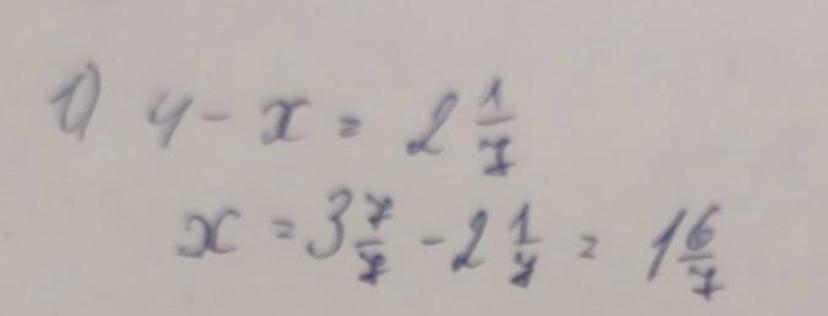 1) 4 - x = 2 1/7
x = 3 7/7 - 2 1/7 = 1 6/7